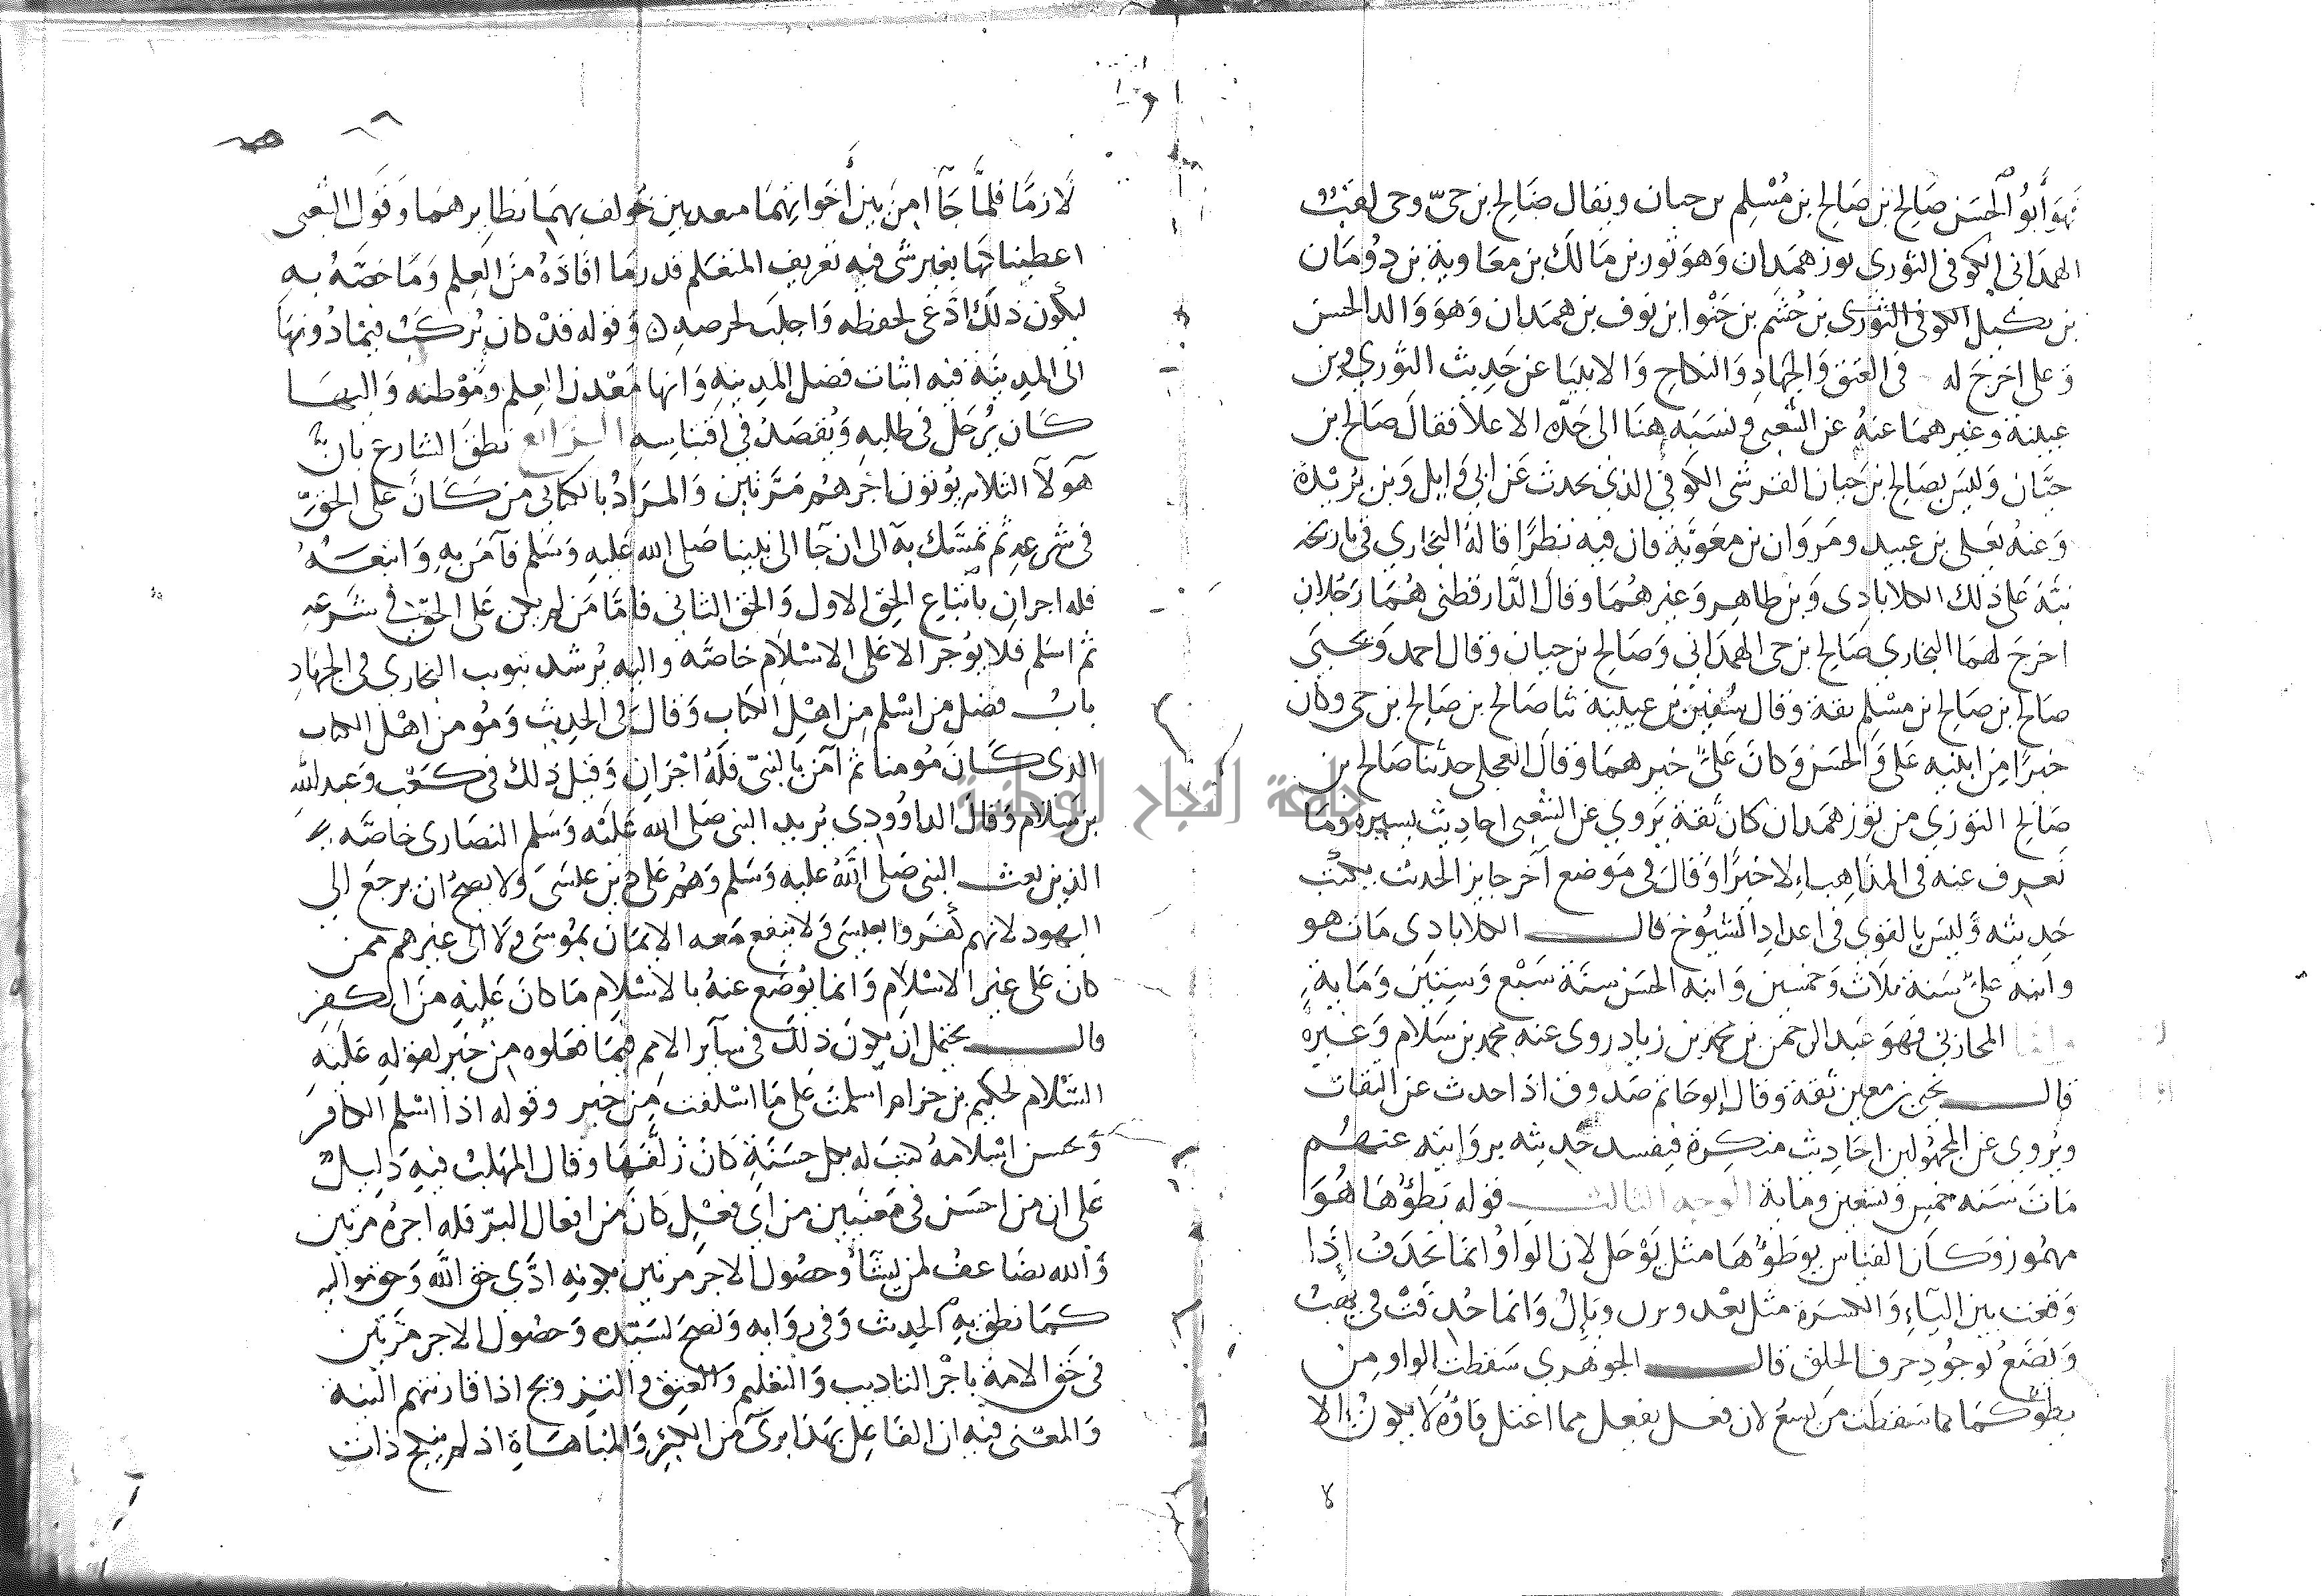 فهو أبو الحسن صالح بن صالح بن مسلم بن حبان ويقال صالح بن حيّ وحي لقب
الهمداني الكوفي الثوري ثور همدان وهو ثور بن مالك بن معاوية بن دومان
بن بكيل الكوفي الثوري بن جشم بن خنوا بن نوف بن همدان وهو والد الحسن
وعلي اخرج له في العتق والجهاد والنكاح والانبيا عن حديث الثوري وبن
عيينة وغيرهما عنه عن الشعبي ونسبه هنا الى جده الاعلا فقال صالح بن
حيان وليس بصالح بن حيان القرشي الكوفي الذي يحدث عن ابي وايل وبن بريدة
وعنه يعلى بن عبيد ومروان بن معوية فان فيه نظرا قاله البخاري في تاريخه
نبه على ذلك الكلاباذي وبن طاهر وغيرهما وقال الدارقطني هما رجلان
اخرج لهما البخاري صالح بن حي الهمداني وصالح بن حيان وقال احمد ويحيى
صالح بن صالح بن مسلم ثقة وقال سفين بن عيينة ثنا صالح بن صالح بن حي وكان
خيرا من ابنيه علي والحسن وكان علي خيرهما وقال العجلي حدثنا صالح بن
صالح الثوري من ثور همدان كان ثقة يروي عن الشعبي احاديث يسيره وما
نعرف عنه في المذاهب الا خيرا وقال في موضع آخر جايز الحديث يكتب
حديثه وليس بالقوي في اعداد الشيوخ قال الكلابادي مات هو
وابنه علي سنة ثلاث وخمسين وابنه الحسن سنة سبع وستين ومايةٍ
واما المحاربي فهو عبد الرحمن بن محمد بن زياد روى عنه محمد بن سلام وغيره
قال يحيى بن معين ثقة وقال ابو حاتم صدوق اذا حدث عن الثقات
ويروي عن المجهولين احاديث منكرة فيفسد حديثه بروايته عنهم
مات سنه خمس وتسعين وماية الوجه الثالث قوله يطؤها هو
مهموز وكان القياس يوطؤها مثل يوجل لان الواو انما تحذف اذا
وقعت بين الياء والكسرة مثل يعد ويزن ويئل وانما حذفت في يهب
ويضع لوجود حرف الحلق قال الجوهري سقطت الواو من
يطؤ كما سقطت من يسع لان فعل يفعل مما اعتل فاؤه لا يكون الا
لا
لازما فلما جآا من بين أخواتهما متعديين خولف بهما نظايرهما وقول الشعبي
اعطيناكها بغير شي فيه تعريف المتعلم قدر ما افاده من العلم وما خصه به
ليكون ذلك ادعى لحفظه واجلب لحرصه وقوله قد كان يركب فيما دونها
الى المدينة فيه اثبات فضل المدينه وانها معدن العلم وموطنه واليها
كان يرحل في طلبه ويقصد في اقتباسه الرابع نطق الشارع بانّ
هولآ الثلاثه يوتون اجرهم مرتين والمراد بالكتابي من كان على الحق
في شرعه ثم تمسك به الى ان جآ الى نبينا صلى الله عليه وسلم فآمن به واتبعه
فله اجران باتباع الحق الاول والحق الثاني فاما من لم يكن على الحق في شرعه
ثم اسلم فلا يوجر الا على الاسلام خاصة واليه يرشد تبويب البخاري في الجهاد
باب فضل من اسلم من اهل الكتاب وقال في الحديث ومومن اهل الكتاب
الذي كان مومنا ثم آمن بالنبي فله اجران وقيل ذلك في كعب وعبد الله
بن سلام وقال الداوودي يريد النبي صلى الله عليه وسلم النصارى خاصه
الذين بعث النبي صلى الله عليه وسلم وهم على دين عيسى ولا يصح ان يرجع الى
اليهود لانهم كفروا بعيسى ولا ينفع معه الايمان بموسى ولا الى غيرهم ممن
كان على غير الاسلام وانما يوضع عنه بالاسلام ما كان عليه من الكفر
قال يحتمل ان يكون ذلك في سآير الامم فيما فعلوه من خير لقوله عليه
السلام لحكيم بن حزام اسلمت على ما اسلفت من خير وقوله اذا اسلم الكافر
وحسن اسلامه كتب له بكل حسنة كان زلفها وقال المهلب فيه دليل
على ان من احسن في معنيين من اي فعل كان من افعال البر فله اجره مرتين
والله يضاعف لمن يشاء وحصول الاجر مرتين بكونه ادى حق الله وحق مواليه
كما نطق به الحديث وفي روايه ونصح لسيده وحصول الاجر مرتين
في حق الامة باجر التاديب والتعليم والعتق والتزويج اذا قارنتهم النية
والمعنى فيه ان الفاعل بهذا بريء من الكبر والمباهاة اذ لم ينكح ذات
جامعة النجاح الوطنية